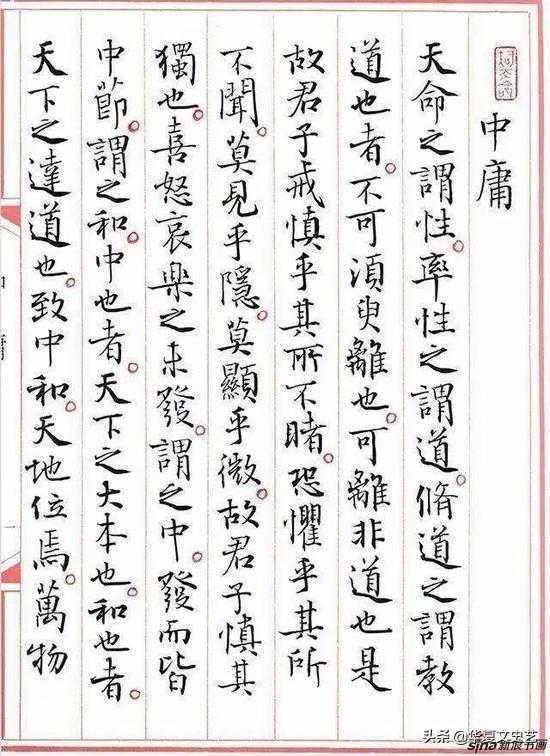 中庸
天命之謂性。率性之謂道。脩道之謂教
道也者。不可須臾離也。可離非道也是
故君子戒慎乎其所不睹。恐懼乎其所
不聞。莫見乎隱。莫顯乎微。故君子慎其
獨也。喜怒哀樂之未發。謂之中。發而皆
中節。謂之和。中也者。天下之大本也。和也者。
天下之達道也。致中和。天地位焉。萬物
头条 @华夏文史艺
sina新浪书画